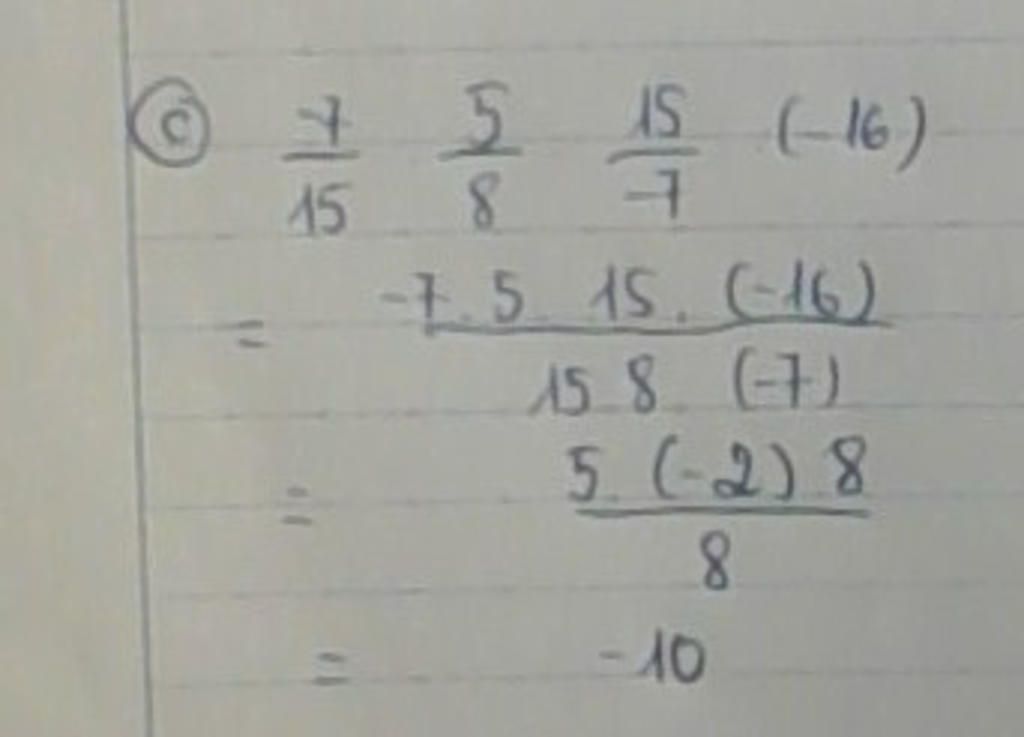 c) -7/15 5/8 15/-7 (-16)
= -7.5 15.(-16)/15 8 (-7)
= 5.(-2) 8/8
= -10